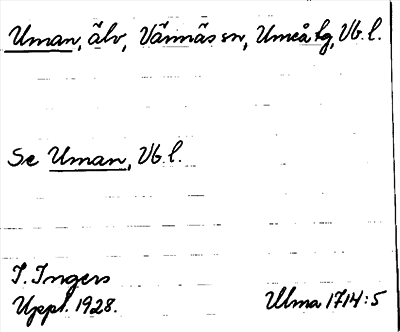 Uman, älv, Vännäs sn, Umeå tg, Vb. l.
Se Uman, Vb. l.
I. Ingers
Uppt. 1928.
Ulma 1714:5